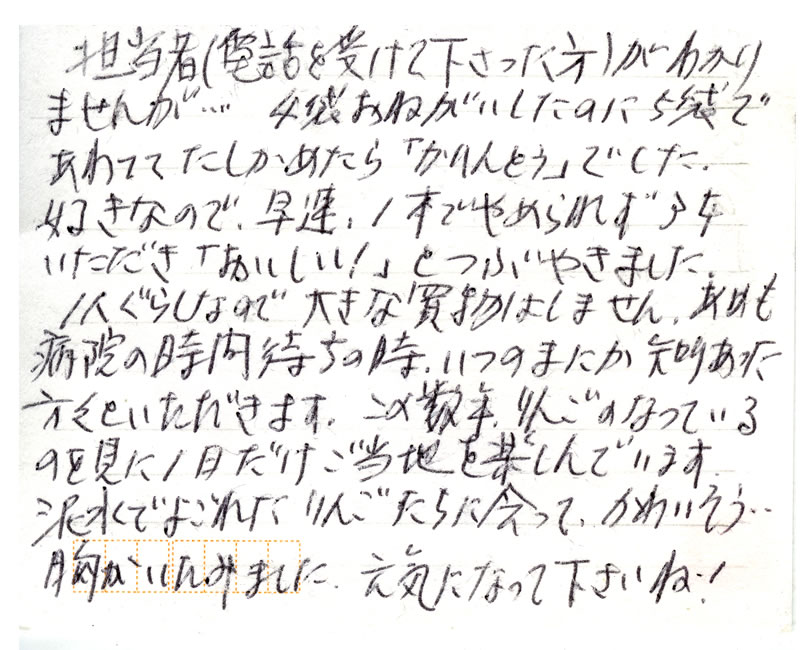 担当者(電話を受けて下さった方)がわかり
ませんが… 4袋おねがいしたのに5袋で
あわててたしかめたら「かりんとう」でした。
好きなので、早速、1本でやめられず3本
いただき「おいしい!」とつぶやきました。
1人ぐらしなので大きな買物はしません。あめも
病院の時間待ちの時、いつのまにか知りあった
方々といただきます。この数年、りんごのなっている
のを見に1日だけご当地を楽しんでいます。
泥水でよごれたりんごたちに会って、かわいそう…
胸がいたみました。元気になって下さいね!